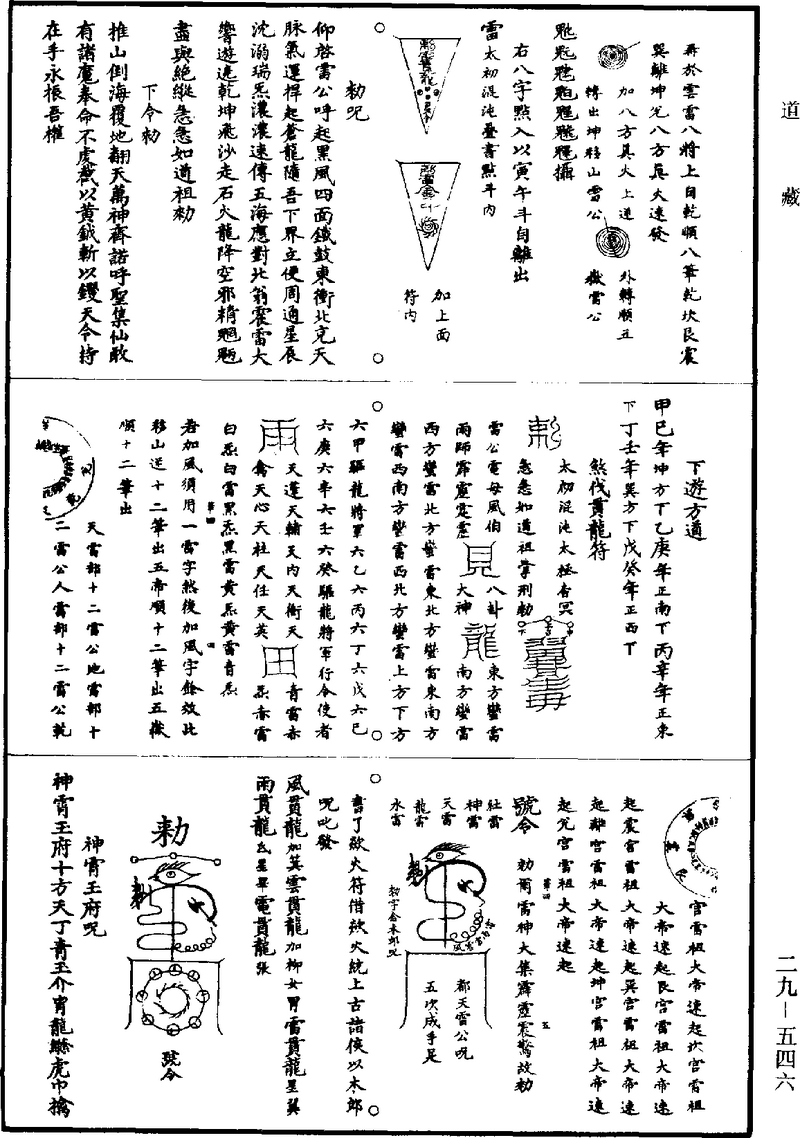 道藏
再於雲雷八將上自乾順八筆乾坎艮震
巽離坤兌八方真火速發
加八方真火上逆
轉出坤移山雷公
外轉順五
嶽雷公
攝
右八字點入以寅午斗自離出
雷太初混沌疊書點斗內
加上面
符內
勑咒
仰啓雷公呼起黑風四面鐵鼓東衝北克天
脉氣運捍起蒼龍隨吾下界立便周通星辰
沈溺瑞炁濃濃速傳五海應對北翁霍雷大
響遊遶乾坤飛沙走石火龍降空邪精魍魎
盡與絕縱急急如道祖勑
下令勑
推山倒海覆地翻天萬神齊諾呼聖集仙敢
有諸魔奉命不虔截以黃鉞斬以鑊天令持
在手永振吾權
下遊方道
甲巳年坤方下乙庚年正南下丙辛年正東
下丁壬年巽方下戊癸年正西下
煞伐貫龍符
太初混沌太極杳冥
勑
急急如道祖掌刑勑
雷公電母風伯
雨師霹靂霆
見
八卦
大神
龍
東方蠻雷
南方蠻雷
西方蠻雷北方蠻雷東北方蠻雷東南方
蠻雷西南方蠻雷西北方蠻雷上方下方
六甲驅龍將軍六乙六丙六丁六戊六巳
六庚六辛六壬六癸驅龍將軍行令使者
雨
天蓬天輔天內天衝天
禽天心天柱天任天英
田
青雷赤
炁赤雷
白炁白雷黑炁黑雷黃炁黃雷青炁
若加風須用一雷字然後加風字餘效此
移山逆十二筆出五帝順十二筆出五嶽
順十二筆出
天雷部十二雷公地雷部十
二雷公人雷部十二雷公乾
宮雷祖大帝速起坎宮雷祖
大帝速起艮宮雷祖大帝速
起震宮雷祖大帝速起巽宮雷祖大帝速
起離宮雷祖大帝速起坤宮雷祖大帝速
起兌宮雷祖大帝速起
號令
勑爾雷神大集霹靂震驚故勑
社雷
神雷
天雷
龍雷
水雷
勑字念木郎咒
都天雷公咒
五次成手足
書了欻火符借欻火統上古諸侯以木郎
咒叱發
風貫龍加箕雲貫龍加柳女胃雷貫龍星翼
雨貫龍氐星畢電貫龍張
勑
號令
神霄王府咒
神霄王府十方天丁青玉介冑龍驂虎巾擒
二九—五四六